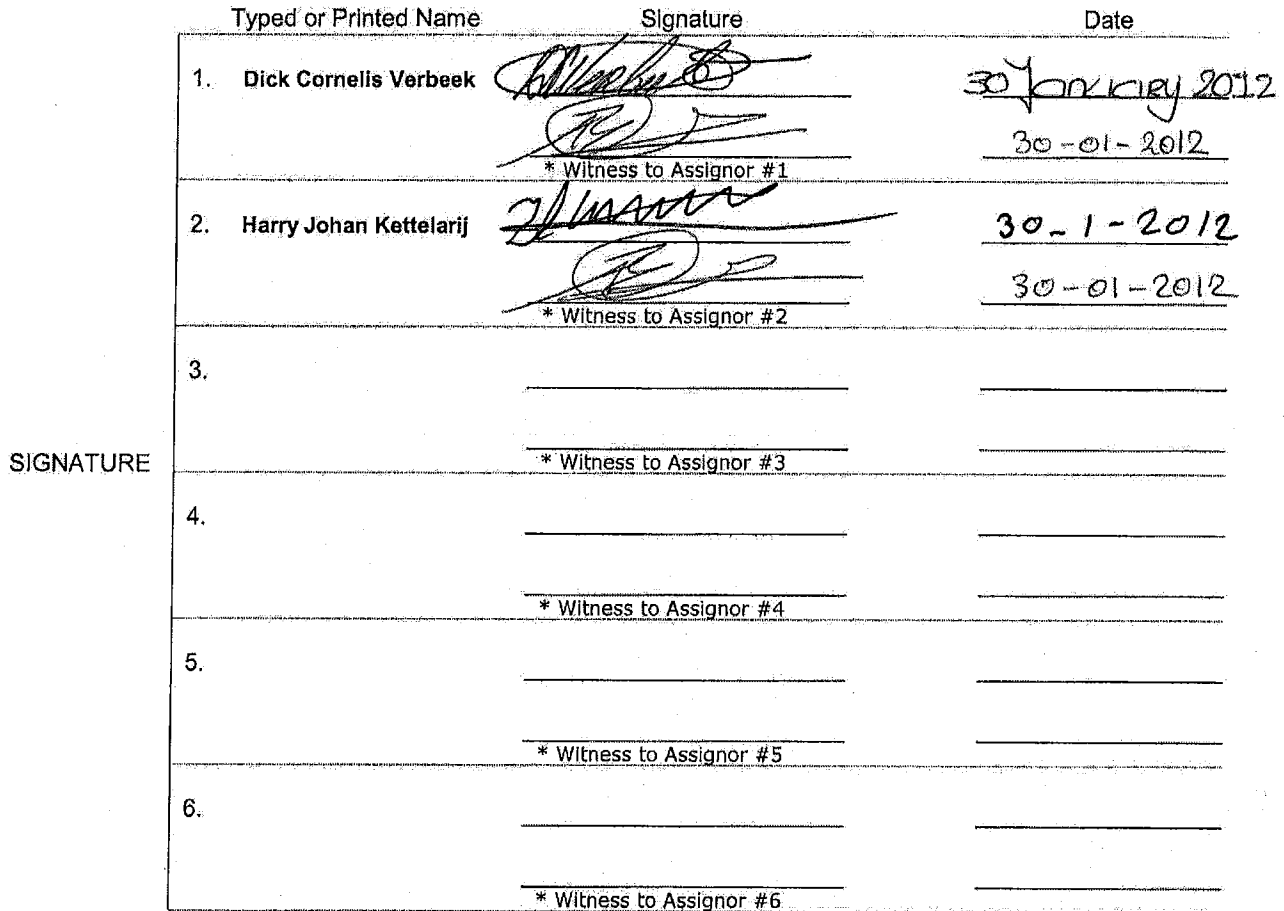 Typed or Printed Name Signature Date
1. Dick Cornelis Verbeek 30 January 2012
30-01-2012
* Witness to Assignor #1
2. Harry Johan Kettelarij 30-1-2012
30-01-2012
* Witness to Assignor #2
3.
SIGNATURE
* Witness to Assignor #3
4.
* Witness to Assignor #4
5.
* Witness to Assignor #5
6.
* Witness to Assignor #6